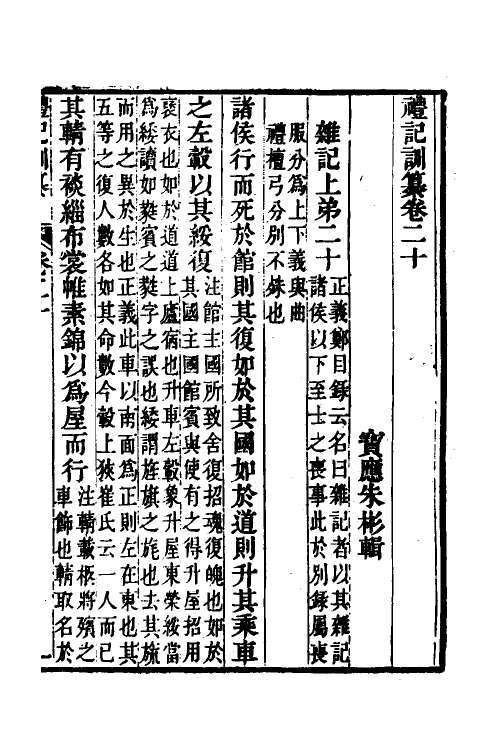 禮記訓纂卷二十
寶應朱彬輯
雜記上弟二十
正義鄭目録云名曰雜記者以其雜記
諸侯以下至士之喪事此於别録屬喪
服分爲上下義與曲
禮檀弓分别不殊也
諸侯行而死於館則其復如於其國如於道則升其乘車
之左轂以其綏復
注館主國所致舍復招魂復魄也如於
其國主國館賓與使有之得升屋招用
褒衣也如於道道上廬宿也升車左轂象升屋東榮綏當
爲緌讀如蕤賓之蕤字之誤也緌謂旌旗之旄也去其旒
而用之異於生也正義此車以南面爲正則左在東也其
五等之復人數各如其命數今轂上狹崔氏云一人而已
其輤有裧緇布裳帷素錦以爲屋而行
注輤載柩將殯之
車飾也輤取名於
禮記訓纂
卷二十
一